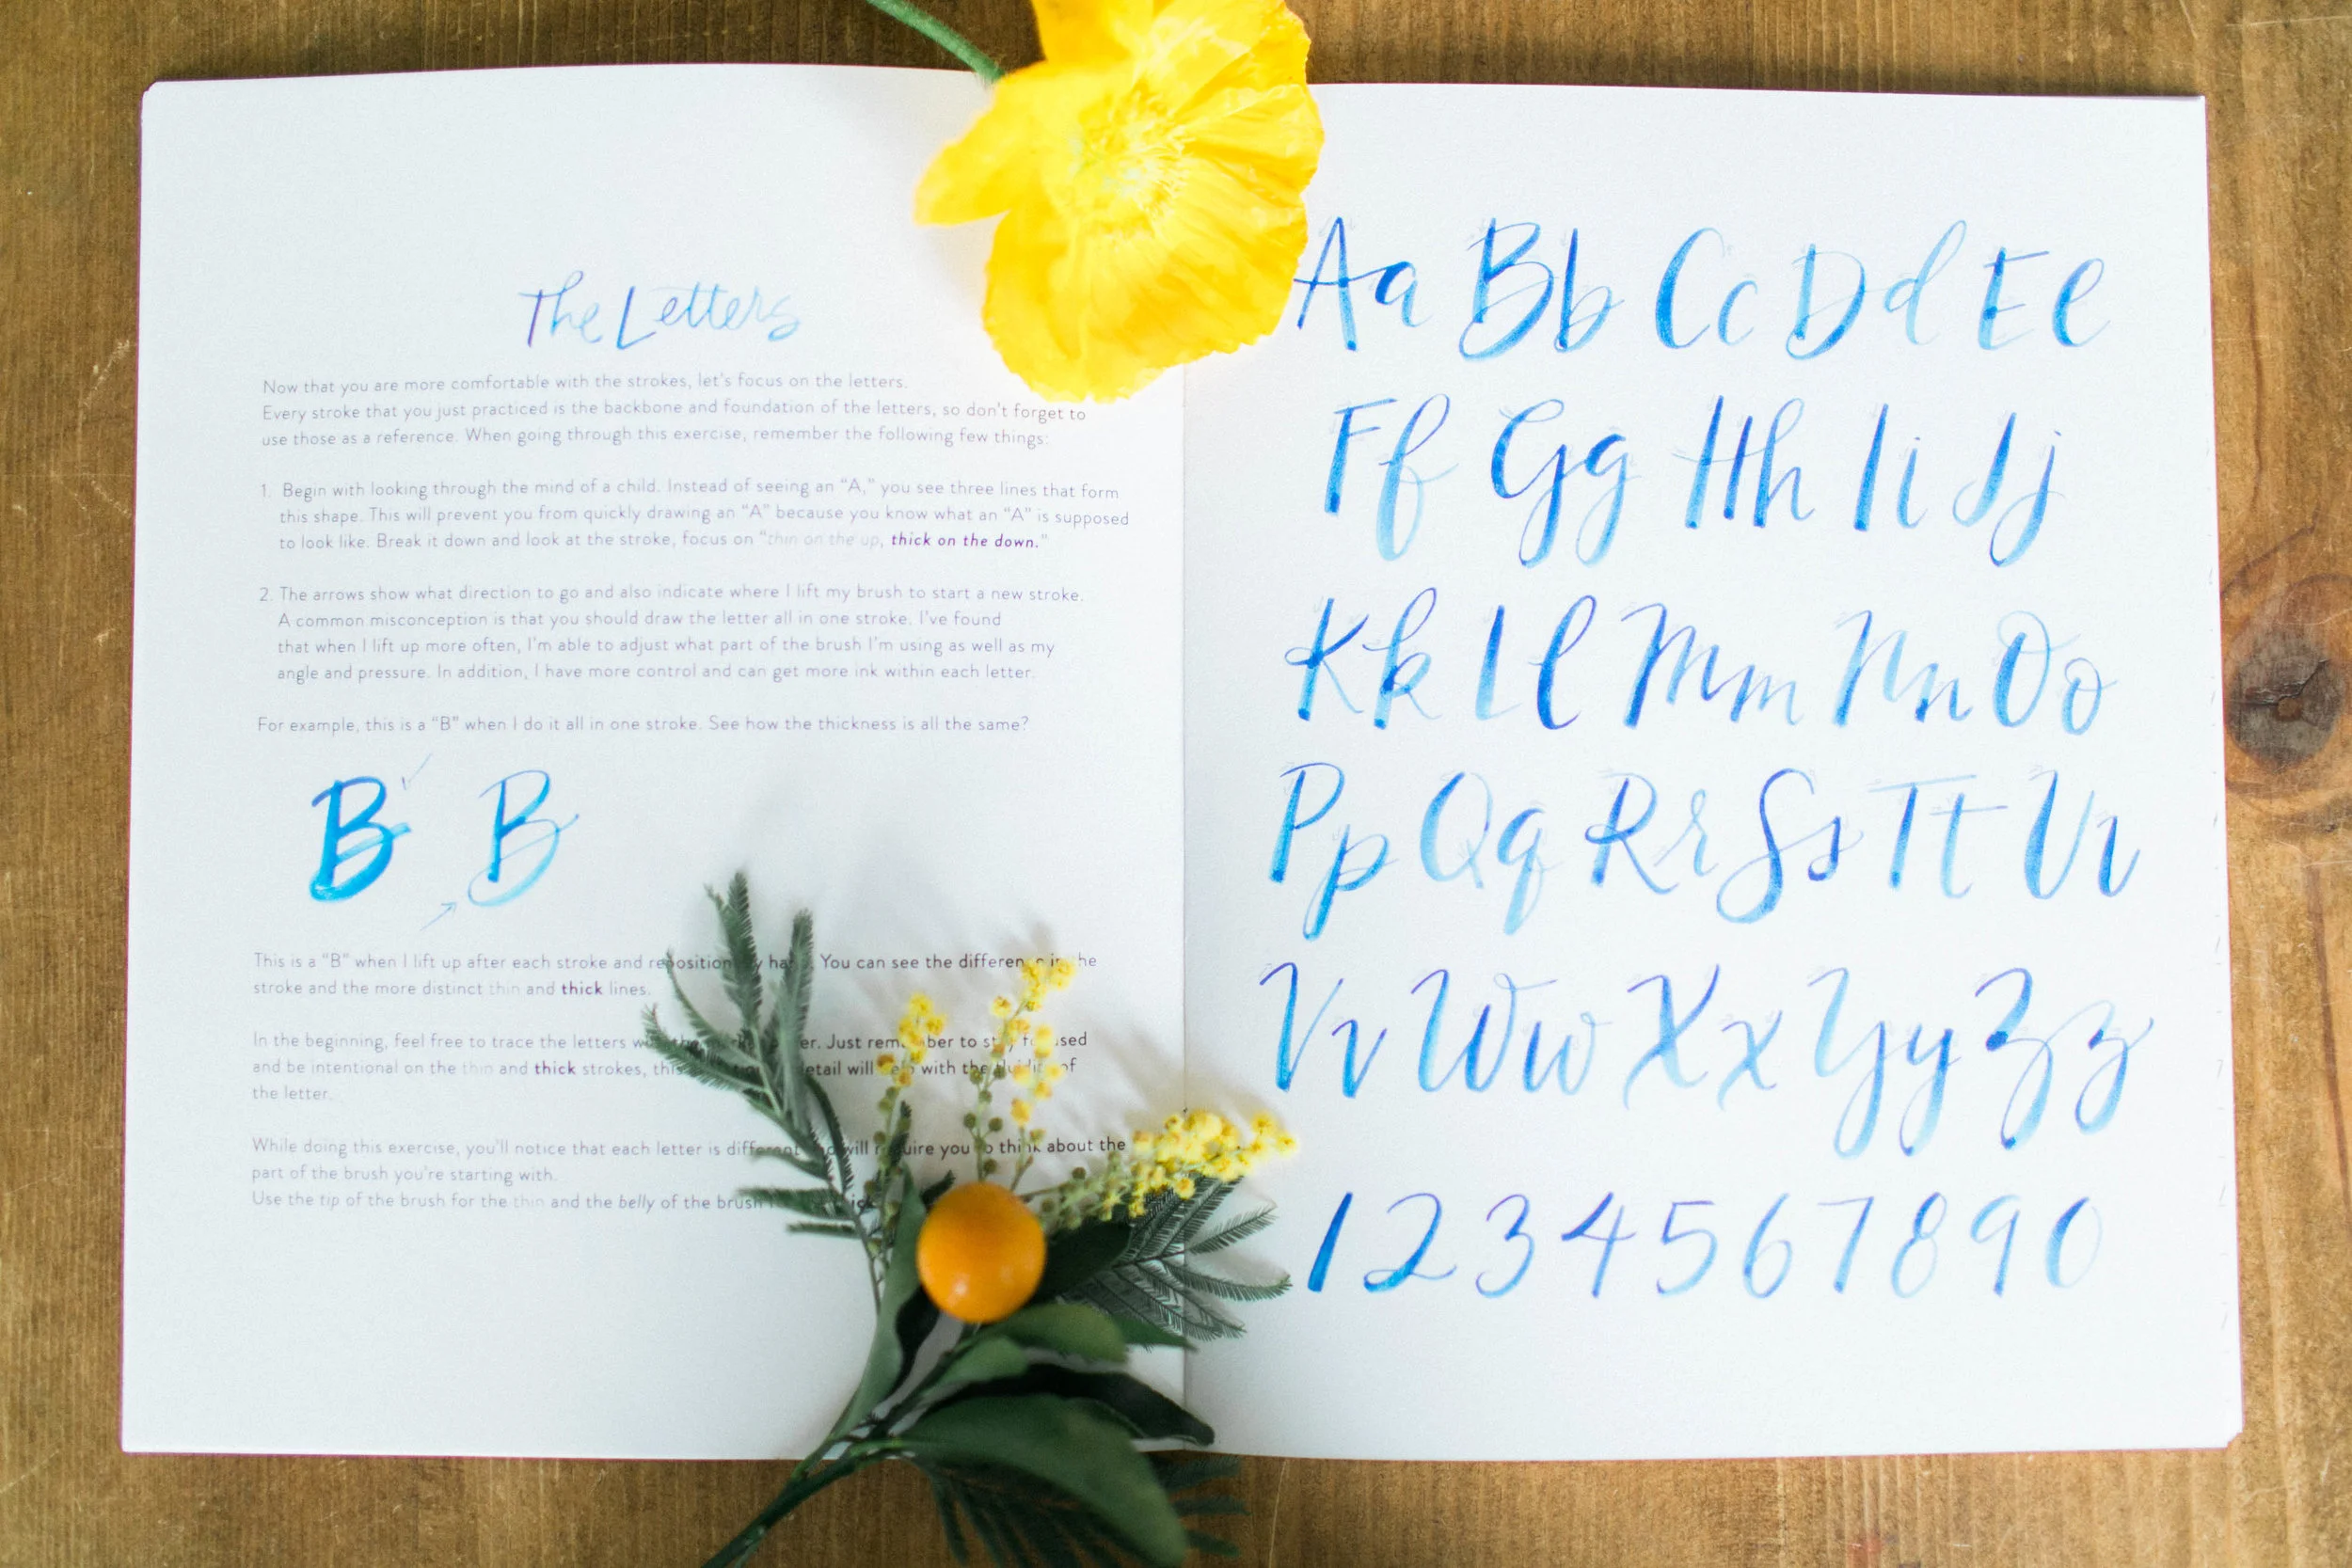 The Letters
Now that you are more comfortable with the strokes, let's focus on the letters.
Every stroke that you just practiced is the backbone and foundation of the letters, so don't forget to
use those as a reference. When going through this exercise, remember the following few things:
1. Begin with looking through the mind of a child. Instead of seeing an "A," you see three lines that form
this shape. This will prevent you from quickly drawing an "A" because you know what an "A" is supposed
to look like. Break it down and look at the stroke, focus on "thin on the up, thick on the down."
2. The arrows show what direction to go and also indicate where I lift my brush to start a new stroke.
A common misconception is that you should draw the letter all in one stroke. I've found
that when I lift up more often, I'm able to adjust what part of the brush I'm using as well as my
angle and pressure. In addition, I have more control and can get more ink within each letter.
For example, this is a "B" when I do it all in one stroke. See how the thickness is all the same?
B B
This is a "B" when I lift up after each stroke and reposition my hand. You can see the difference in the
stroke and the more distinct thin and thick lines.
In the beginning, feel free to trace the letters Just remember to stay focused
and be intentional on the thin and thick strokes, this detail will help with the fluidity of
the letter.
While doing this exercise, you'll notice that each letter is different and will require you to think about the
part of the brush you're starting with.
Use the tip of the brush for the thin and the belly of the brush
Aa Bb Cc Dd Ee
Ff Gg Hh Ii Jj
Kk Ll Mm Nn Oo
Pp Qq Rr Ss Tt Vv
Vv Ww Xx Yy Zz
1 2 3 4 5 6 7 8 9 0